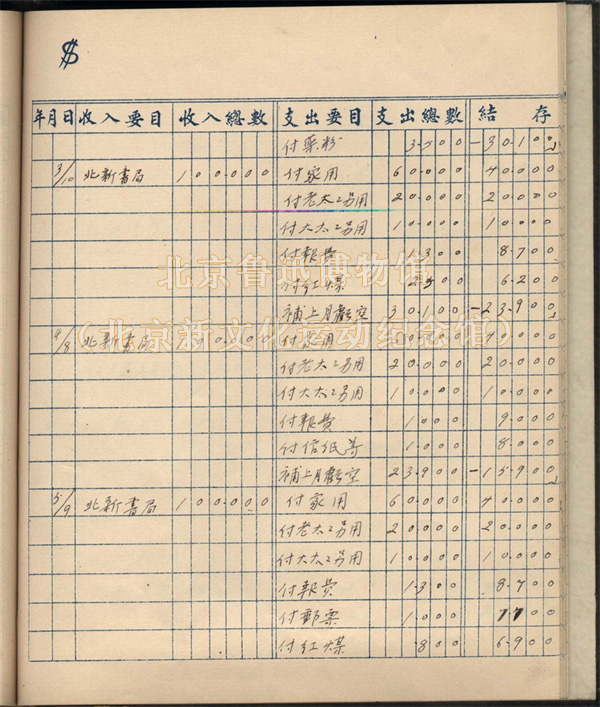 $
年月日 收入要目 收入總數 支出要目 支出總數 結存
付藥粉 3.200 -30.100
3/10 北新書局 100.000 付家用 60.000 40.000
付老太太另用 20.000 20.000
付大太太另用 10.000 10.000
付報費 1.300 8.700
付紅煤 2.500 6.200
補上月虧空 30.100 -23.900
4/8 北新書局 100.000 付家用 60.000 40.000
付老太太另用 20.000 20.000
付大太太另用 10.000 10.000
付報費 1.000 9.000
付信紙等 1.000 8.000
補上月虧空 23.900 -15.900
5/9 北新書局 100.000 付家用 60.000 40.000
付老太太另用 20.000 20.000
付大太太另用 10.000 10.000
付報費 1.300 8.700
付郵票 1.000 7.700
付紅煤 .800 6.900
北京鲁迅博物馆
（北京新文化运动纪念馆）